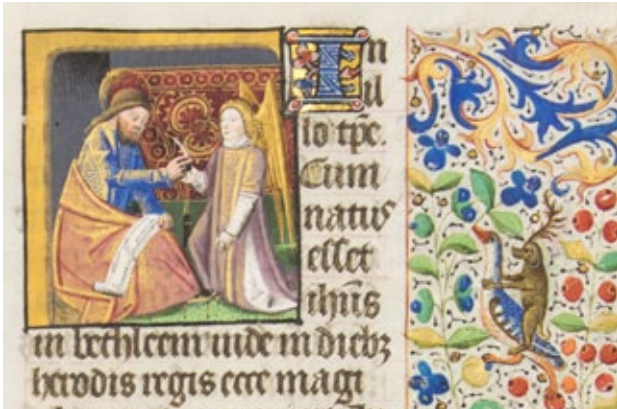 In
il
lo tp̄e.
Cum
natus
esset
ihūs
in bethleem iude in diebꝫ
herodis regis ecce magi